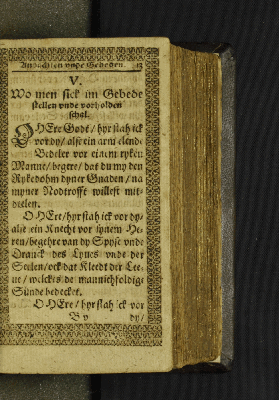 Andachten vnde Gebeden.
V.
Wo men sick im Gebede
stellen vnde vorholden
schal.
O HEre Godt / hyr stah ick
vor dy / alse ein arm elende
Bedeler vor einem ryken
Manne / begere / dat du my den
Rykedohm dyner Gnaden / na
myner Nodtrofft willest mit-
deelen.
O HEre / hyr stah ick vor dy /
alse ein Knecht vor synem He-
ren / begehre van dy Spyse vnde
Dranck des Lyues vnde der
Seelen / ock dat Kleedt der Lee-
ue / welckes de mannichfoldige
Sünde bedecket.
O HEre / hyr stah ick vor
B v dy /